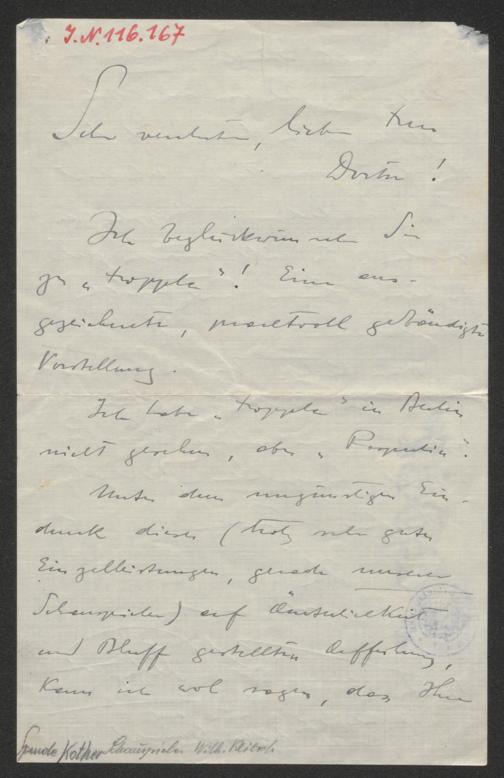 I.N. 116.167
Sehr verehrter, lieber Herr
Doktor!
Ich beglückwünsche Sie
zu „Hoppla"! Eine aus-
gezeichnete, prachtvoll gebändigte
Vorstellung.
Ich habe „Hoppla" in Berlin
nicht gesehen, aber „Rasputin".
Unter dem ungünstigen Ein-
druck dieser (trotz sehr guter
Einzelleistungen, gerade unserer
Schauspieler) auf Äusserlichkeit
und Bluff gestellten Aufführung,
kann ich wol sagen, dass Ihre
Spende Kother Schauspieler Wilh. Klitsch